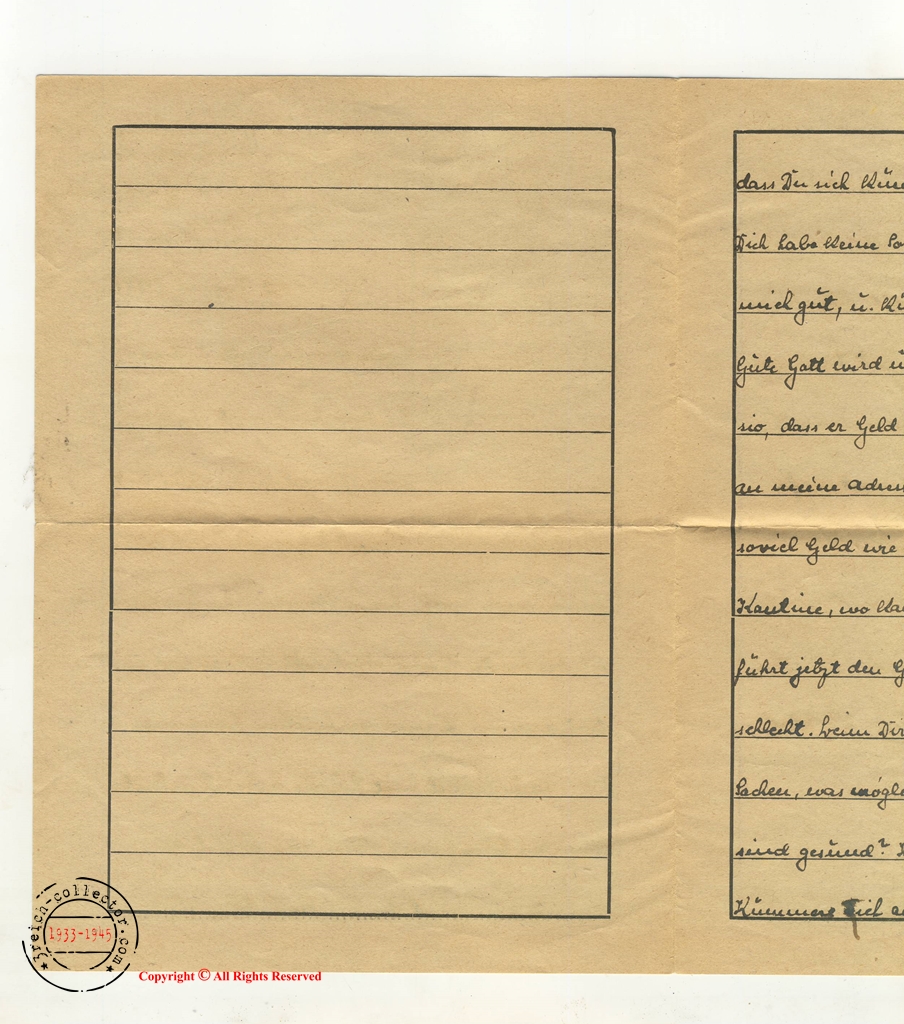 dass Du sich
Dich habe keine
mich gut, u.
Gute Gott wird
sio, dass er Geld
an meine
soviel Geld wie
Kantine, wo
führt jetzt den
schlecht. Wenn
Sachen, was
sind gesund?
Kümmere
3reich-collector.com
1933-1945
Copyright © All Rights Reserved